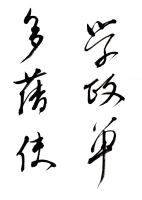 学政单
多藉使